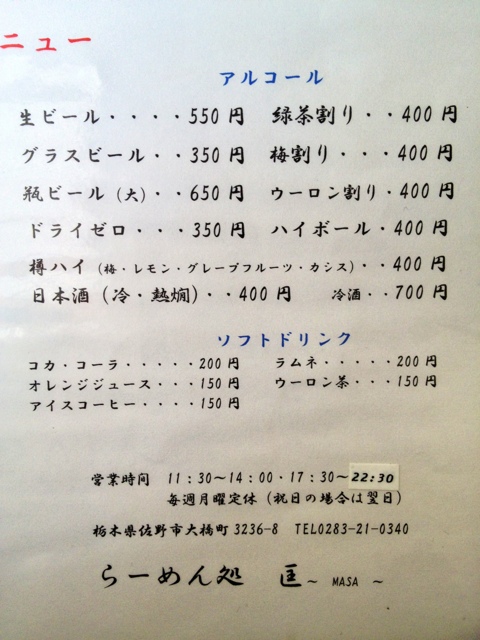 ニュー
アルコール
生ビール・・・・550円 緑茶割り・・400円
グラスビール・・350円 梅割り・・・400円
瓶ビール（大）・・650円 ウーロン割り・400円
ドライゼロ・・・350円 ハイボール・400円
樽ハイ（梅・レモン・グレープフルーツ・カシス）・・400円
日本酒（冷・熱燗）・・400円 冷酒・・700円
ソフトドリンク
コカ・コーラ・・・・・200円 ラムネ・・・・・200円
オレンジジュース・・・150円 ウーロン茶・・・150円
アイスコーヒー・・・・150円
営業時間 11:30～14:00・17:30～22:30
毎週月曜定休（祝日の場合は翌日）
栃木県佐野市大橋町3236-8 TEL0283-21-0340
らーめん処 匡～ MASA ～